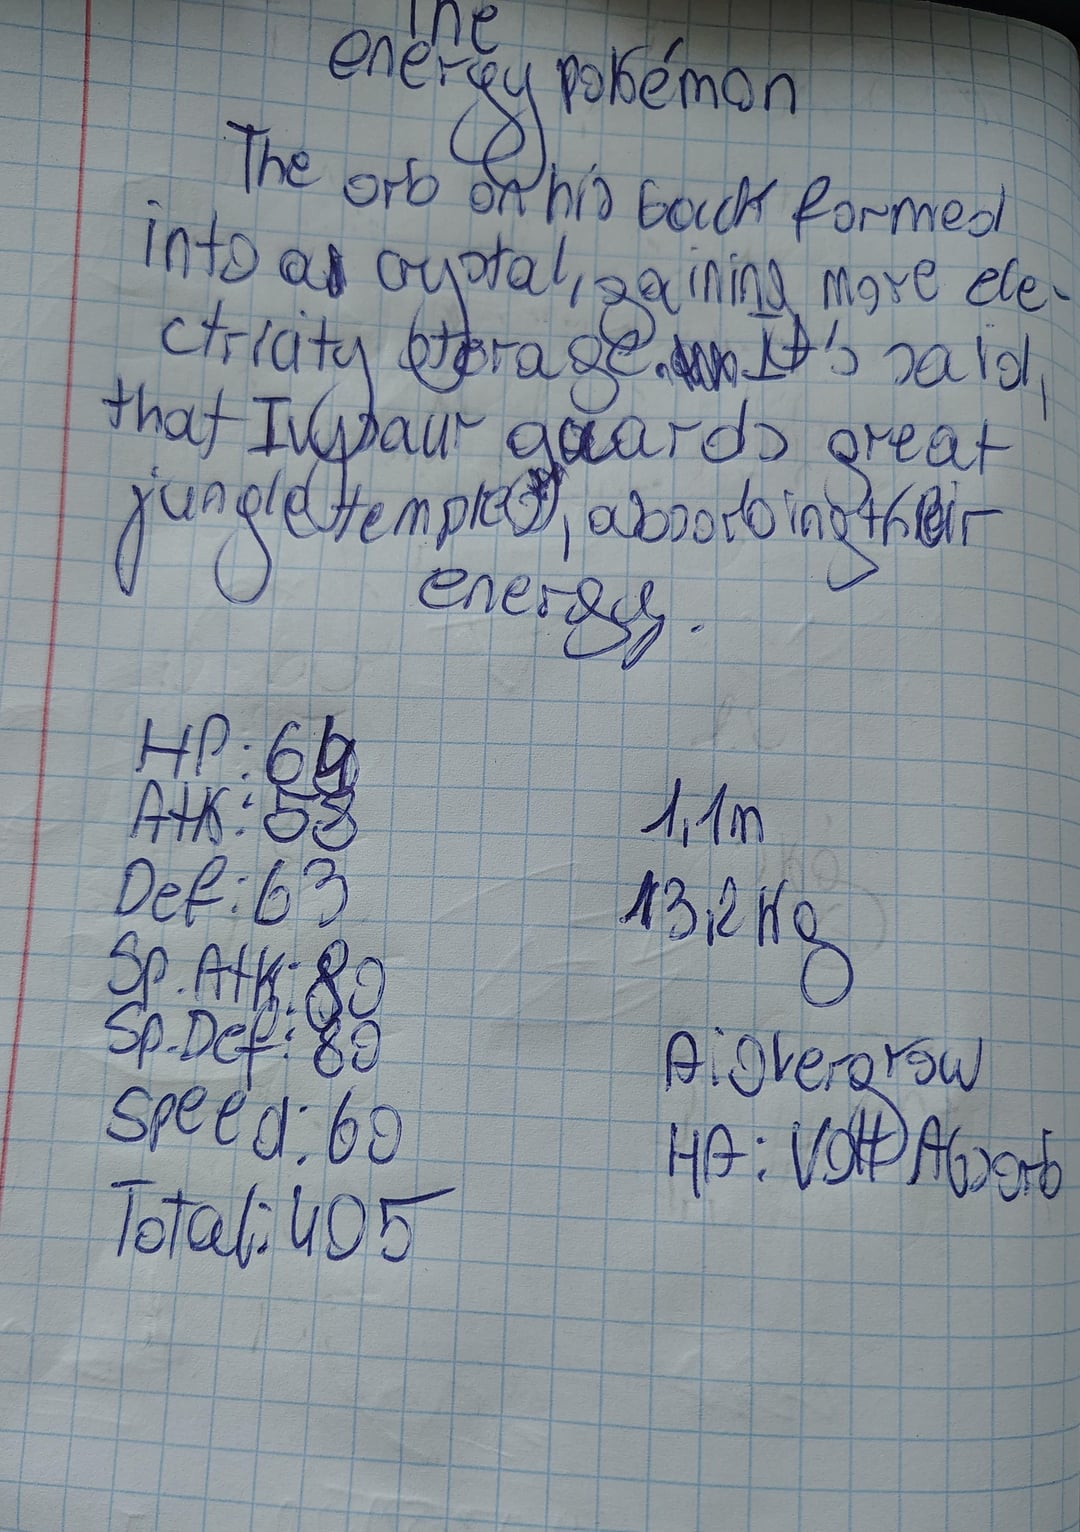 The
energy pokémon
The orb on his back formed
into a crystal, gaining more ele-
ctricity storage. It's said,
that Ivysaur guards great
jungle temples, absorbing their
energy.
HP: 64
Atk: 58
Def: 63
Sp. Atk: 80
Sp. Def: 80
Speed: 60
Total: 405
1,1m
13,2 Kg
A: Overgrow
HA: Volt Absorb